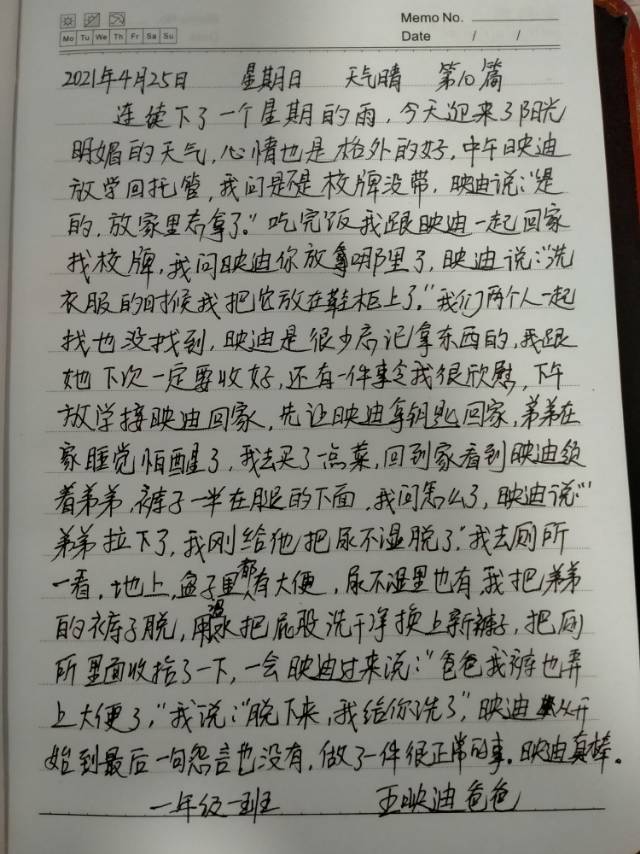 Memo No.
Mo Tu We Th Fr Sa Su
Date / /
2021年4月25日 星期日 天气晴 第10篇
连续下了一个星期的雨，今天迎来了阳光
明媚的天气，心情也是格外的好，中午映迪
放学回托管，我问是不是校牌没带，映迪说：“是
的，放家里忘拿了。”吃完饭我跟映迪一起回家
找校牌，我问映迪你放哪里了，映迪说：“洗
衣服的时候我把它放在鞋柜上了。”我们两个人一起
找也没找到，映迪是很少忘记拿东西的，我跟
她下次一定要收好，还有一件事令我很欣慰，下午
放学接映迪回家，先让映迪拿钥匙回家，弟弟在
家睡觉怕醒了，我去买了一点菜，回到家看到映迪领
着弟弟，裤子一半在腿的下面，我问怎么了，映迪说：“
弟弟拉下了，我刚给他把尿不湿脱了”我去厕所
一看，地上，盆子里都有大便，尿不湿里也有，我把弟弟
的裤子脱，用温水把屁股洗干净换上新裤子，把厕
所里面收拾了一下，一会映迪过来说：“爸爸我裤也弄
上大便了，”我说：“脱下来，我给你洗了”，映迪从开
始到最后一句怨言也没有，做了一件很正常的事。映迪真棒。
一年级一班 王映迪爸爸